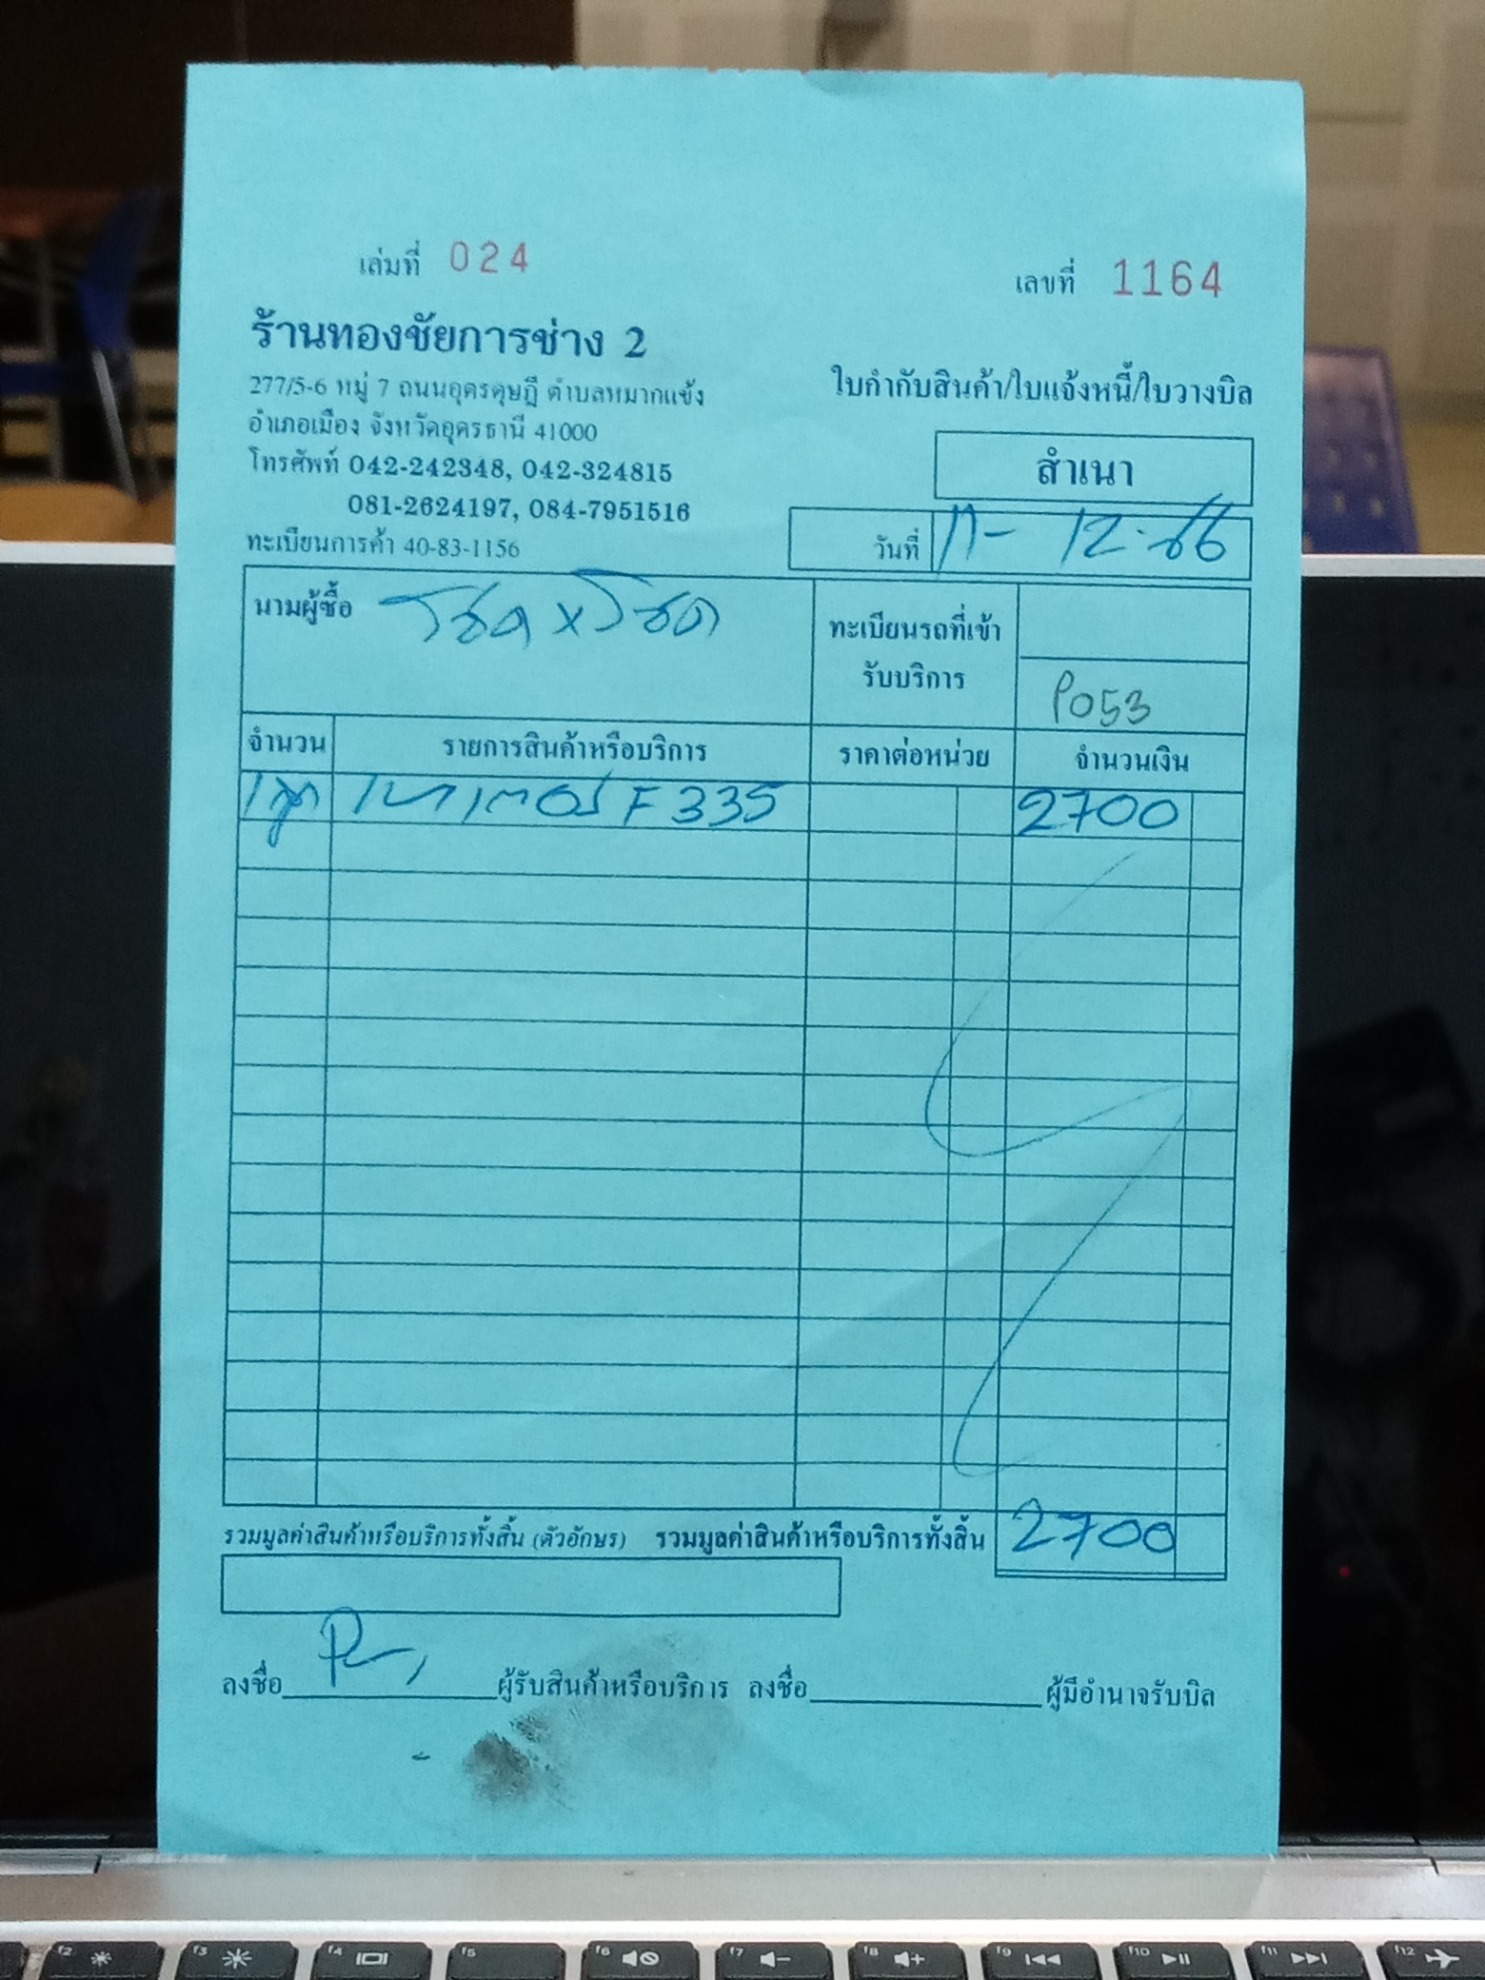 เล่มที่ 024
เลขที่ 1164
ร้านทองชัยการช่าง 2
277/5-6 หมู่ 7 ถนนอุดรดุษฎี ตำบลหมากแข้ง
อำเภอเมือง จังหวัดอุดรธานี 41000
โทรศัพท์ 042-242348, 042-324815
081-2624197, 084-7951516
ทะเบียนการค้า 40-83-1156
ใบกำกับสินค้า/ใบแจ้งหนี้/ใบวางบิล
สำเนา
วันที่ 12-66
นามผู้ซื้อ โชค x โชค
ทะเบียนรถที่เข้า
รับบริการ
P053
จำนวน รายการสินค้าหรือบริการ ราคาต่อหน่วย จำนวนเงิน
1 ลูก F 335 2700
รวมมูลค่าสินค้าหรือบริการทั้งสิ้น (ตัวอักษร) รวมมูลค่าสินค้าหรือบริการทั้งสิ้น 2700
ลงชื่อ ผู้รับสินค้าหรือบริการ ลงชื่อ ผู้มีอำนาจรับบิล
f2 f3 f4 f5 f6 f7 f8 f9 f10 f11 f12